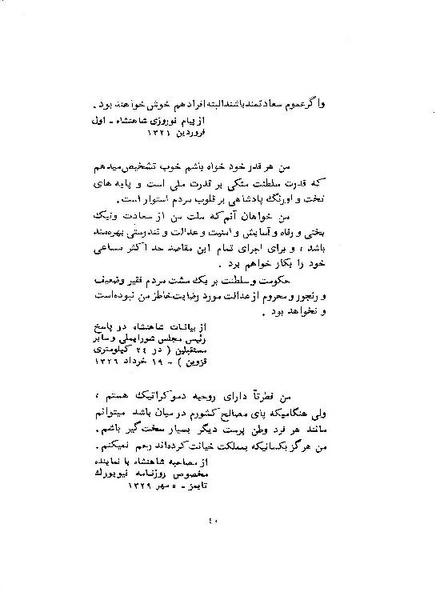 و اگر عموم سعادتمند باشند البته افراد هم خوش خواهند بود .
از پیام نوروزی شاهنشاه - اول
فروردین ۱۳۲۱
من هر قدر خود خواه باشم خوب تشخیص میدهم
که قدرت سلطنت متکی بر قدرت ملی است و پایه های
تخت و اورنگ پادشاهی بر قلوب مردم استوار است .
من خواهان آنم که ملت من از سعادت و نیک
بختی و رفاه و آسایش و امنیت و عدالت و تندرستی بهره‌مند
باشد ، و برای اجرای تمام این مقاصد حد اکثر مساعی
خود را بکار خواهم برد .
حکومت و سلطنت بر یک مشت مردم فقیر وضعیف
و رنجور و محروم از عدالت مورد رضایت خاطر من نبوده است
و نخواهد بود .
از بیانات شاهنشاه در پاسخ
رئیس مجلس شورایملی و سایر
مستقبلین ( در ۲۴ کیلومتری
قزوین ) - ۱۹ خرداد ۱۳۲۶
من فطرتاً دارای روحیه دموکراتیک هستم ،
ولی هنگامیکه پای مصالح کشورم در میان باشد میتوانم
مانند هر فرد وطن پرست دیگر بسیار سخت گیر باشم .
من هرگز بکسانیکه بمملکت خیانت کرده‌اند رحم نمیکنم .
از مصاحبه شاهنشاه با نماینده
مخصوص روزنامه نیویورک
تایمز - ۵ مهر ۱۳۲۹
۴۰